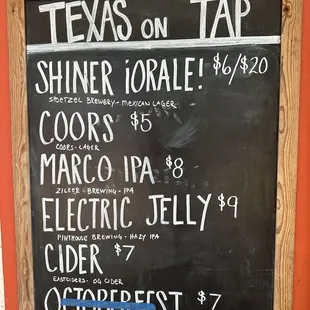 TEXAS ON TAP
SHINER ¡ORALE! $6/$20
SPOETZEL BREWERY - MEXICAN LAGER
COORS $5
COORS - LAGER
MARCO IPA $8
ZILKER BREWING - IPA
ELECTRIC JELLY $9
PINTHOUSE BREWING - HAZY IPA
CIDER $7
EASTCIDERS - OG CIDER
OCTOBERFEST $7